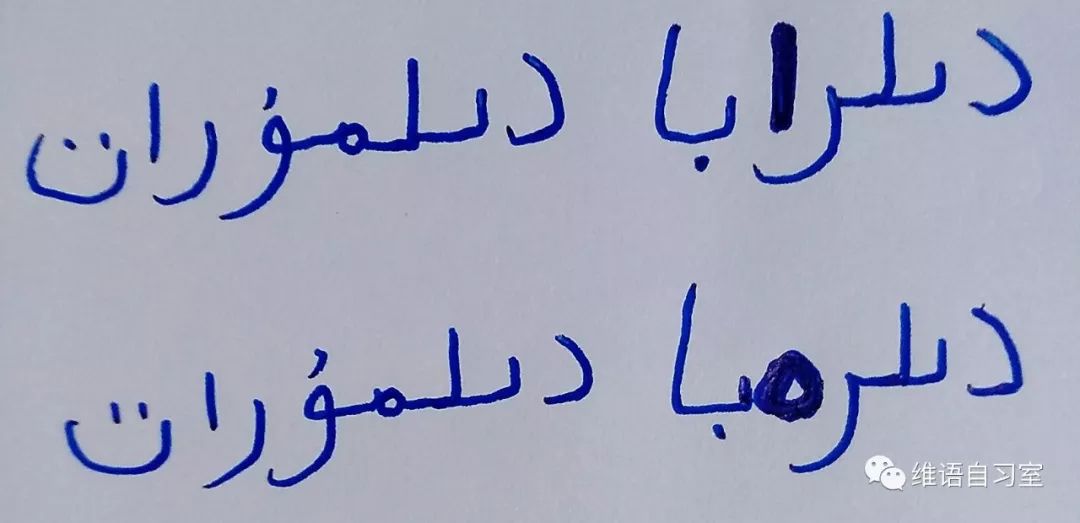 دىلرابا دىلمۇرات
دىلرەبا دىلمۇرات
维语自习室